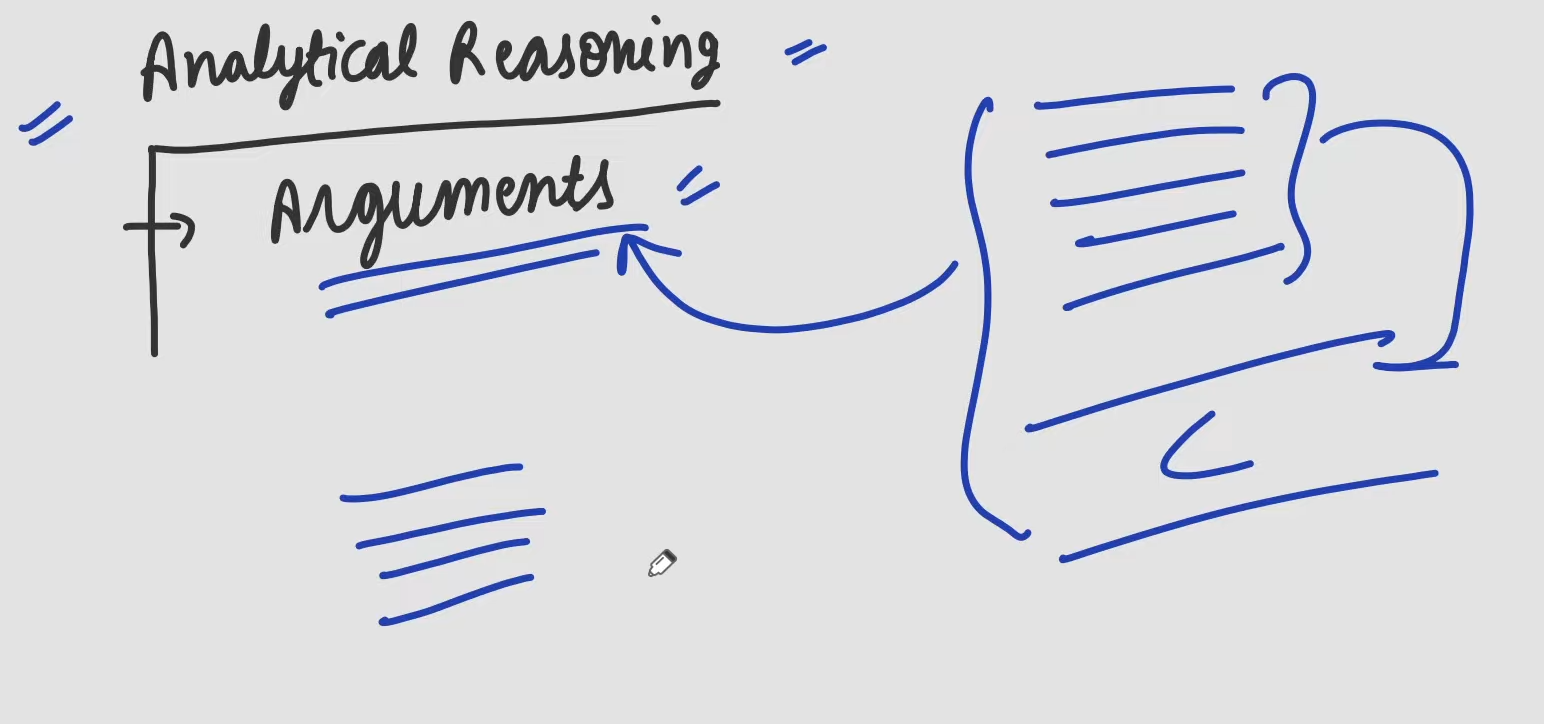 Analytical Reasoning
Arguments
C